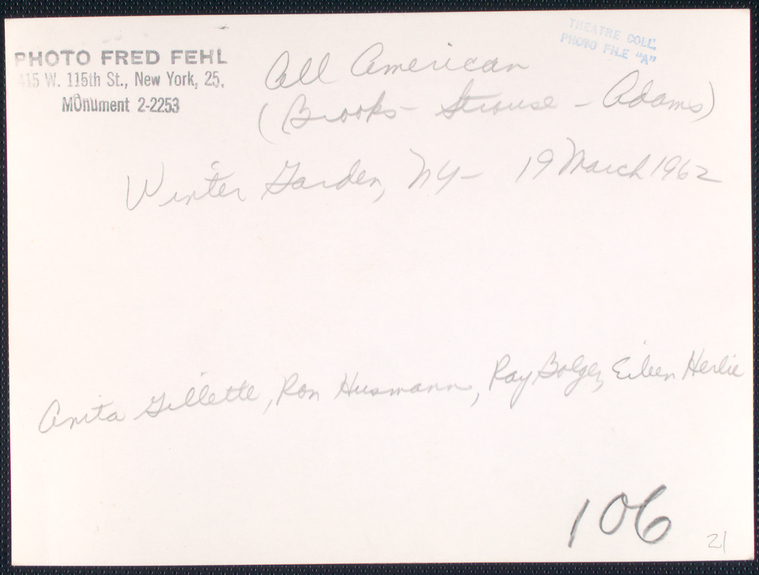 PHOTO FRED FEHL
415 W. 115th St., New York, 25,
MOnument 2-2253
THEATRE COLL.
PHOTO FILE "A"
All American
(Brooks - Strouse - Adams)
Winter Garden, NY - 19 March 1962
Anita Gillette, Ron Husmann, Ray Bolger, Eileen Herlie
106
21